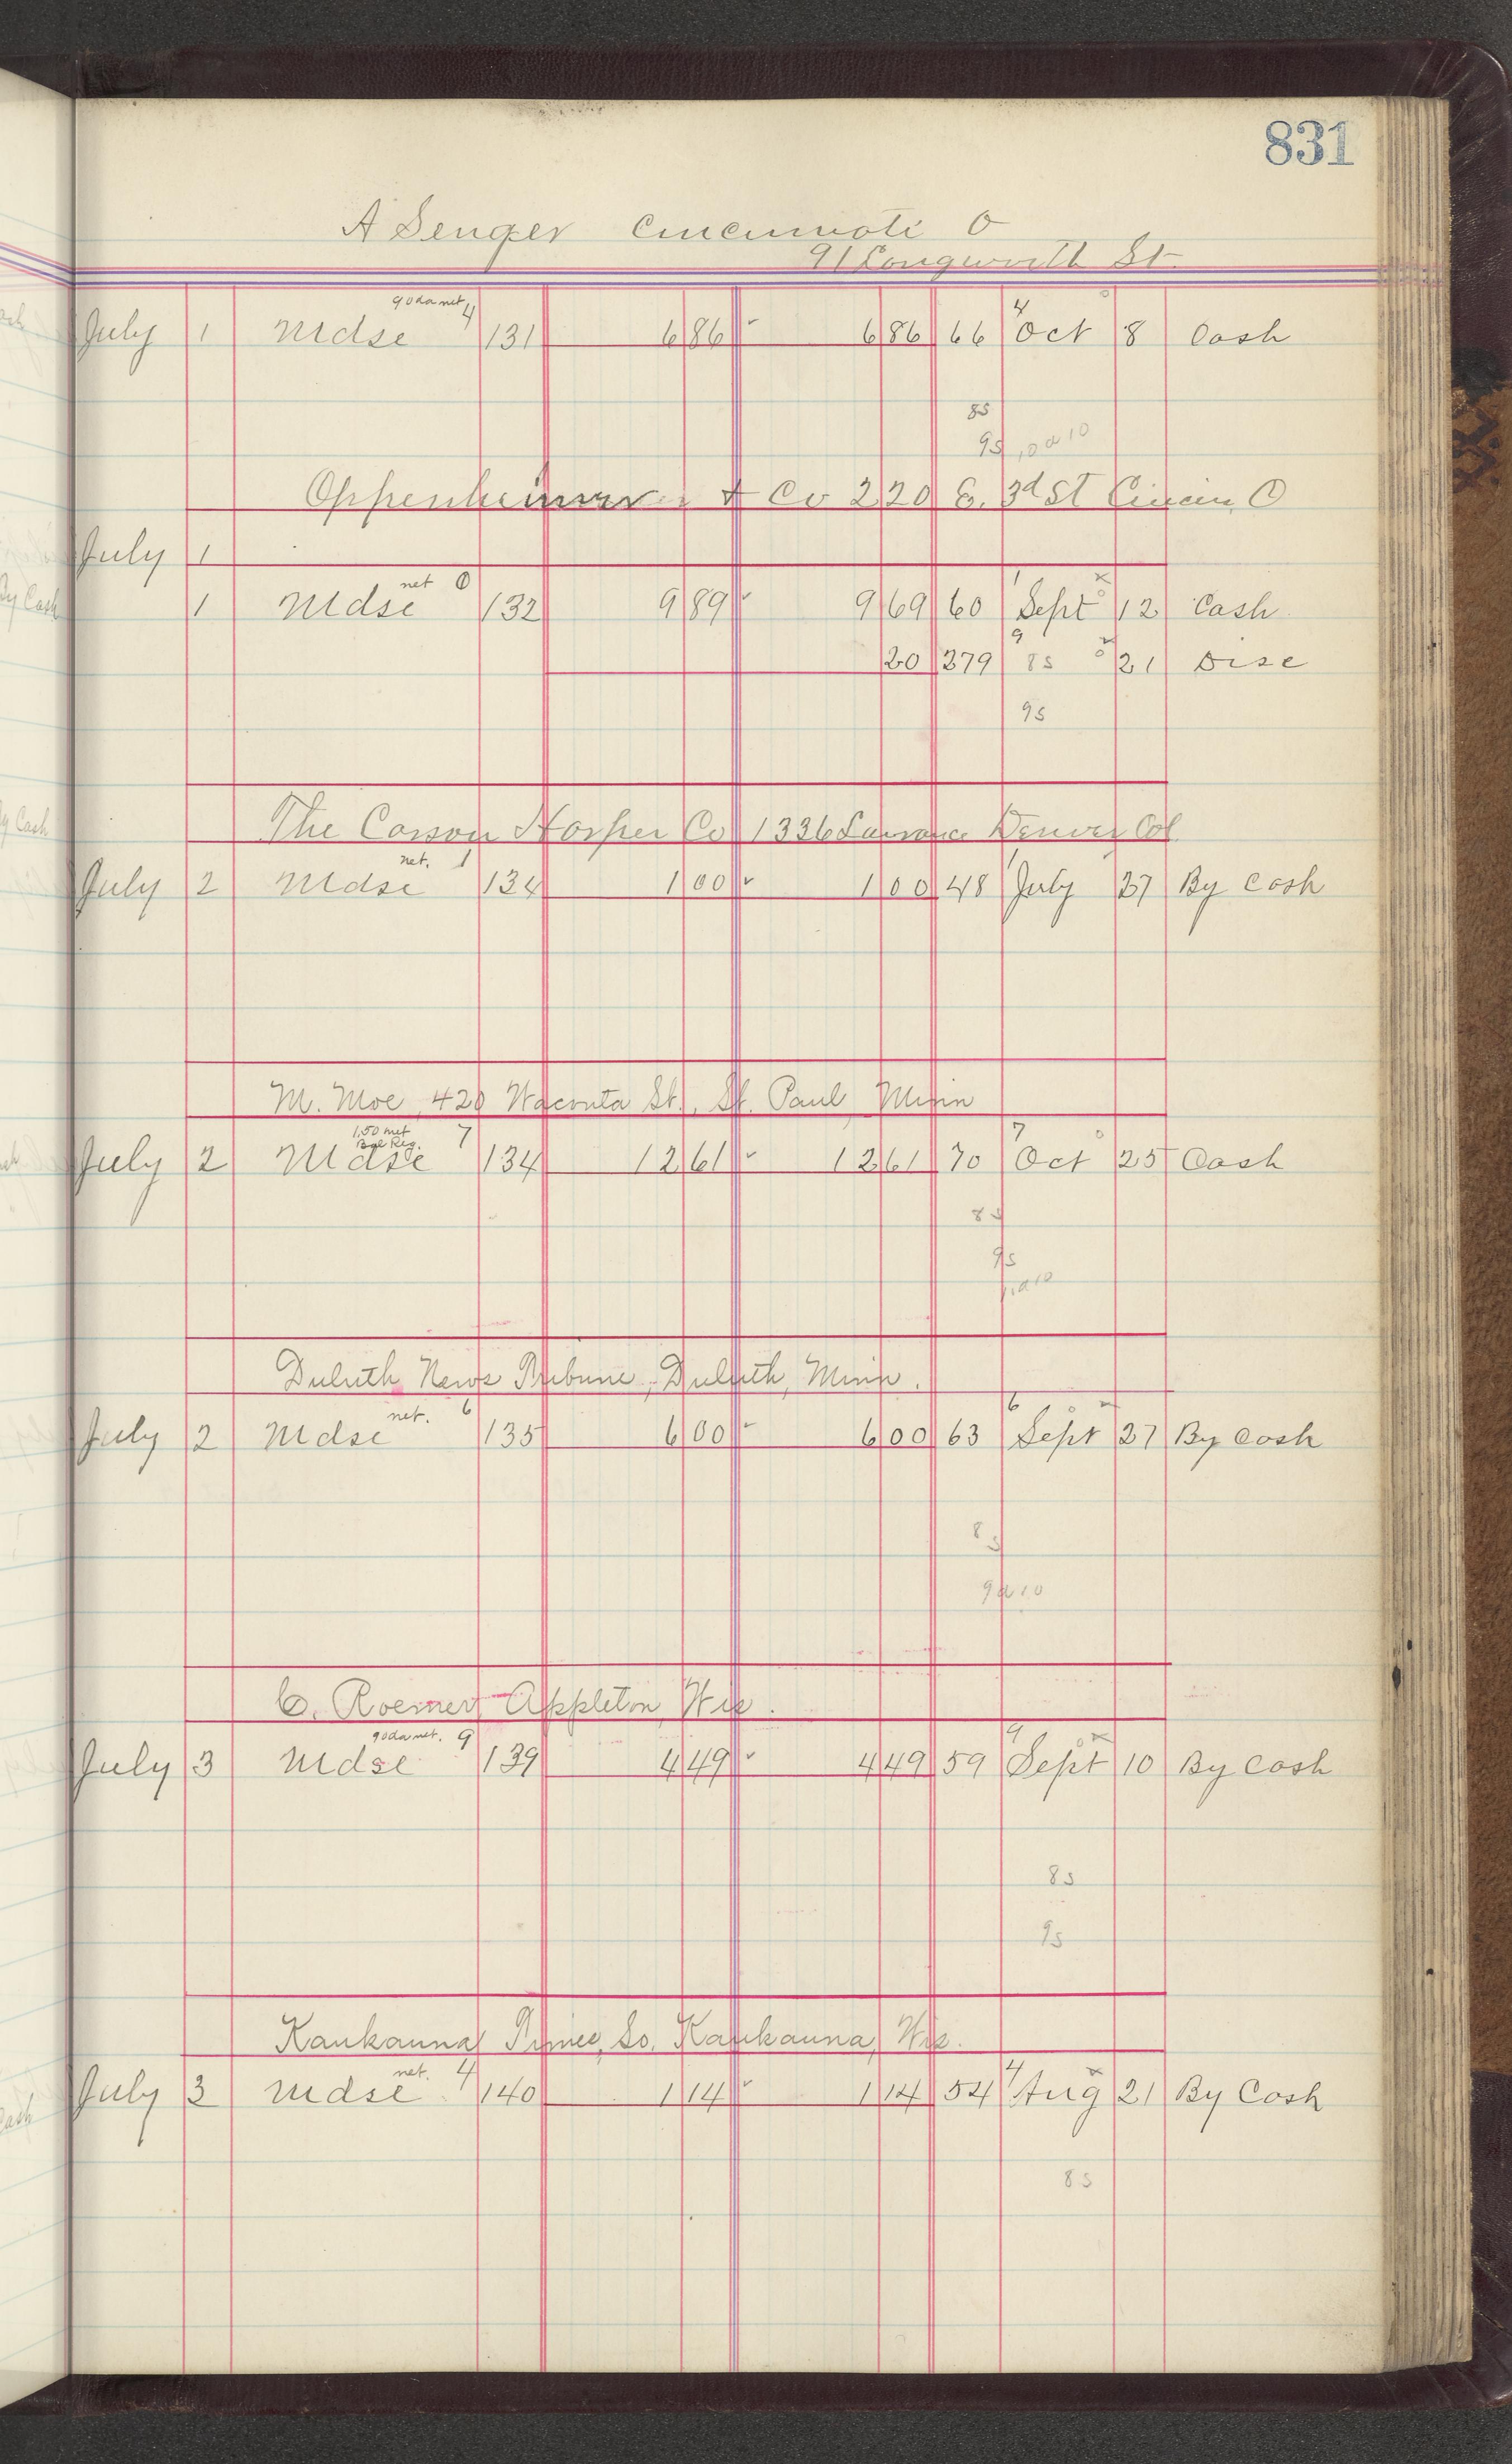 831
A Senger Cincinnati O
91 Longworth St
90 da net 4 4
July 1 Mdse 131 6 86 6 86 66 Oct 8 Cash
8s
9s
Oppenheimer & Co 220 E. 3d St Cincin, O
July 1
net 0 1
1 Mdse 132 9 89 9 69 60 Sept 12 Cash
9
20 279 8s 21 Disc
9s
The Carson Harper Co 1336 Lawrance Denver Col
net. 1 1
July 2 Mdse 134 1 00 1 00 48 July 27 By Cash
M. Moe, 420 Waconta St., St. Paul, Minn
1.50 net 7 7
Bal Reg.
July 2 Mdse 134 12 61 12 61 70 Oct 25 Cash
8s
9s
Duluth News Tribune, Duluth, Minn.
net. 6 6
July 2 Mdse 135 6 00 6 00 63 Sept 27 By Cash
8s
9a10
C. Roemer, Appleton, Wis.
90 da net. 9 9
July 3 Mdse 139 4 49 4 49 59 Sept 10 By Cash
8s
9s
Kaukauna Times, So. Kaukauna, Wis.
net. 4 4
July 3 Mdse 140 1 14 1 14 54 Aug 21 By Cash
8s